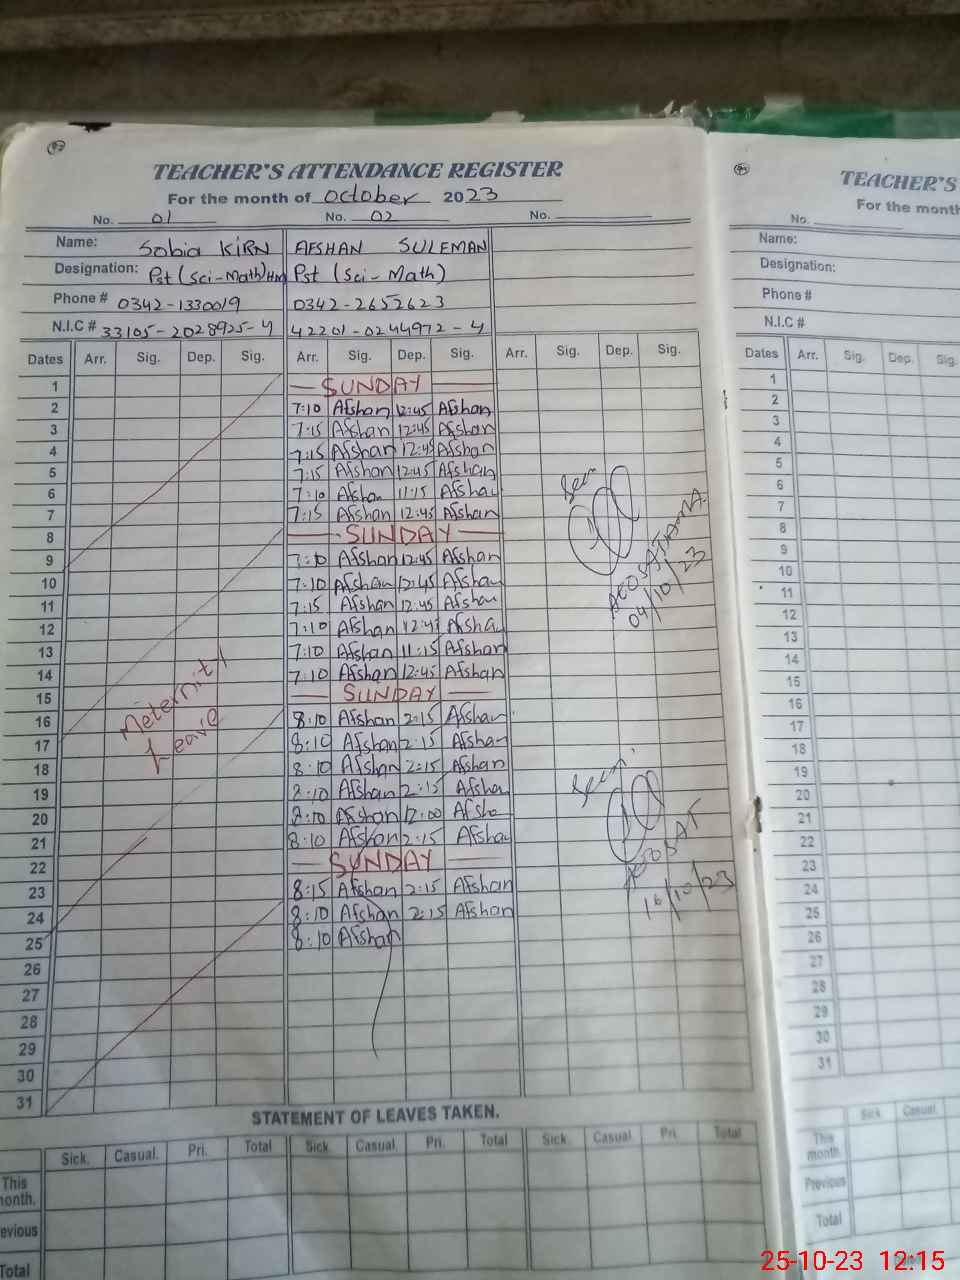 TEACHER'S ATTENDANCE REGISTER
For the month of October 2023
No. 01 No. 02 No.
Name: Sobia KIRN AFSHAN SULEMAN
Designation: Pst (Sci-Math) HM Pst (Sci-Math)
Phone # 0342-1330019 0342-2652623
N.I.C # 33105-2028925-4 42201-0244972-4
Dates Arr. Sig. Dep. Sig. Arr. Sig. Dep. Sig. Arr. Sig. Dep. Sig.
1 SUNDAY
2 7:10 Afshan 12:45 Afshan
3 7:15 Afshan 12:45 Afshan
4 7:15 Afshan 12:45 Afshan
5 7:15 Afshan 12:45 Afshan
6 7:10 Afshan 11:15 Afshan
7 7:15 Afshan 12:45 Afshan
8 SUNDAY
9 7:10 Afshan 12:45 Afshan
10 7:10 Afshan 12:45 Afshan
11 7:15 Afshan 12:45 Afshan
12 7:10 Afshan 12:45 Afshan
13 7:10 Afshan 11:15 Afshan
14 7:10 Afshan 12:45 Afshan
15 SUNDAY
16 8:10 Afshan 2:15 Afshan
17 8:10 Afshan 2:15 Afshan
18 8:10 Afshan 2:15 Afshan
19 8:10 Afshan 2:15 Afshan
20 8:10 Afshan 12:00 Afshan
21 8:10 Afshan 2:15 Afshan
22 SUNDAY
23 8:15 Afshan 2:15 Afshan
24 8:10 Afshan 2:15 Afshan
25 8:10 Afshan
26
27
28
29
30
31
Meternity
Leave
Seen
04/10/23
Seen
16/10/23
STATEMENT OF LEAVES TAKEN.
Sick. Casual. Pri. Total Sick. Casual. Pri. Total Sick. Casual. Pri. Total
This
month.
Previous
Total
TEACHER'S
For the month
No.
Name:
Designation:
Phone #
N.I.C #
Dates Arr. Sig. Dep. Sig.
1
2
3
4
5
6
7
8
9
10
11
12
13
14
15
16
17
18
19
20
21
22
23
24
25
26
27
28
29
30
31
Sick. Casual.
This
month.
Previous
Total
25-10-23 12:15